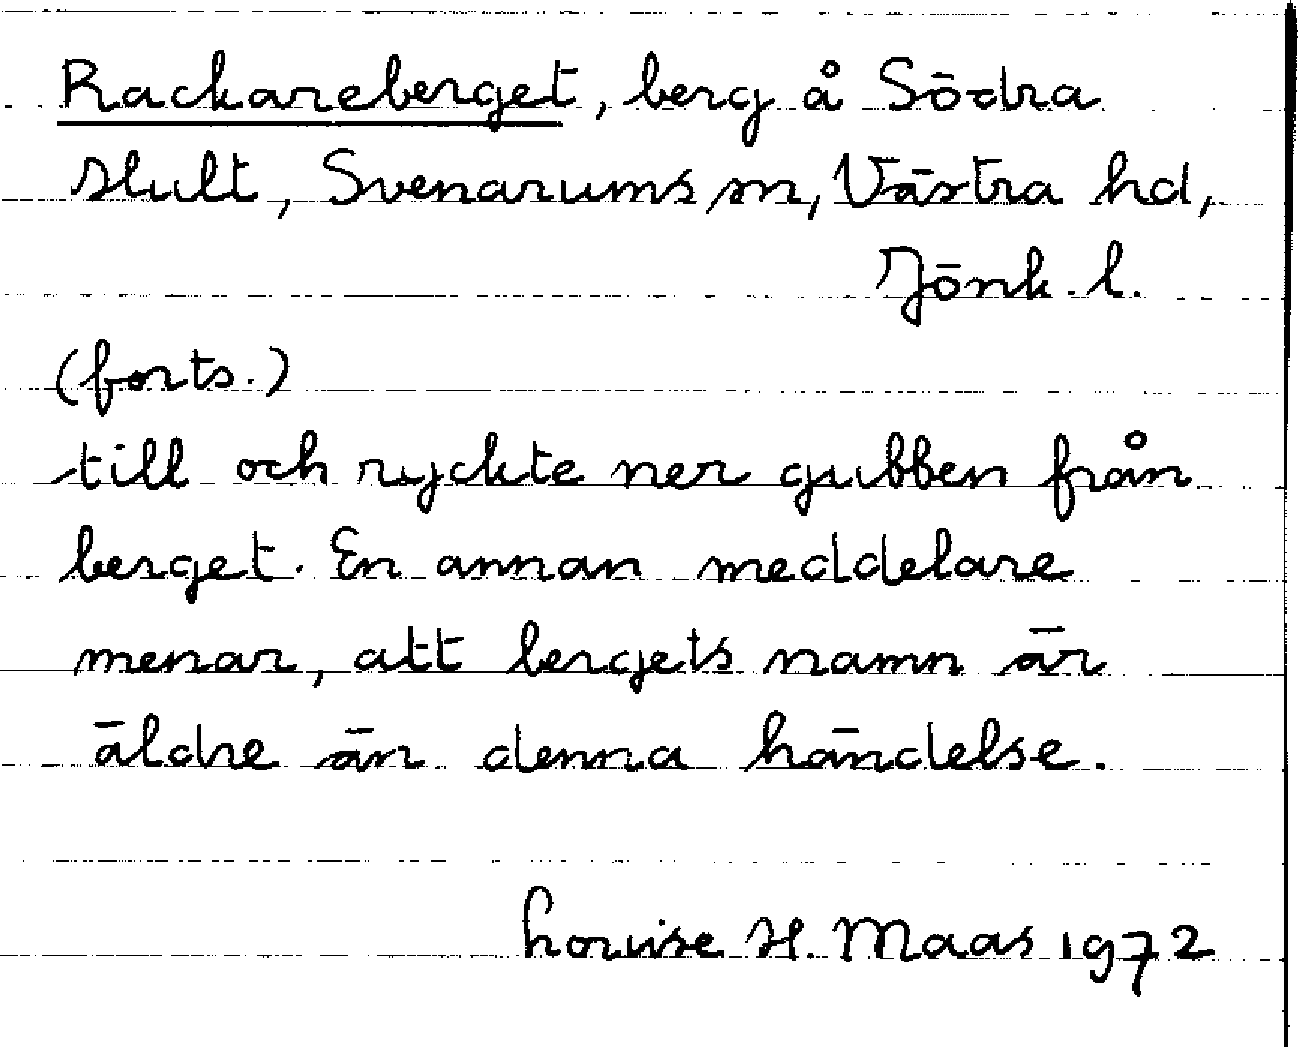 Rackareberget, berg å Södra
Slult, Svenarums sn, Västra hd,
Jönk. l.
(forts.)
till och ryckte ner gubben från
berget. En annan meddelare
menar, att bergets namn är
äldre än denna händelse.
Louise H. Maas 1972